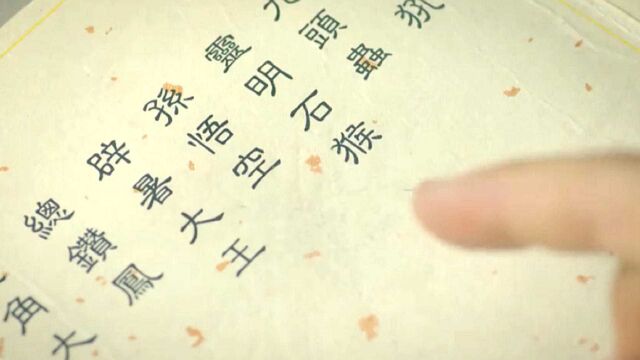 犼
九頭蟲
靈明石猴
孫悟空
辟暑大王
總鑽鳳
角大